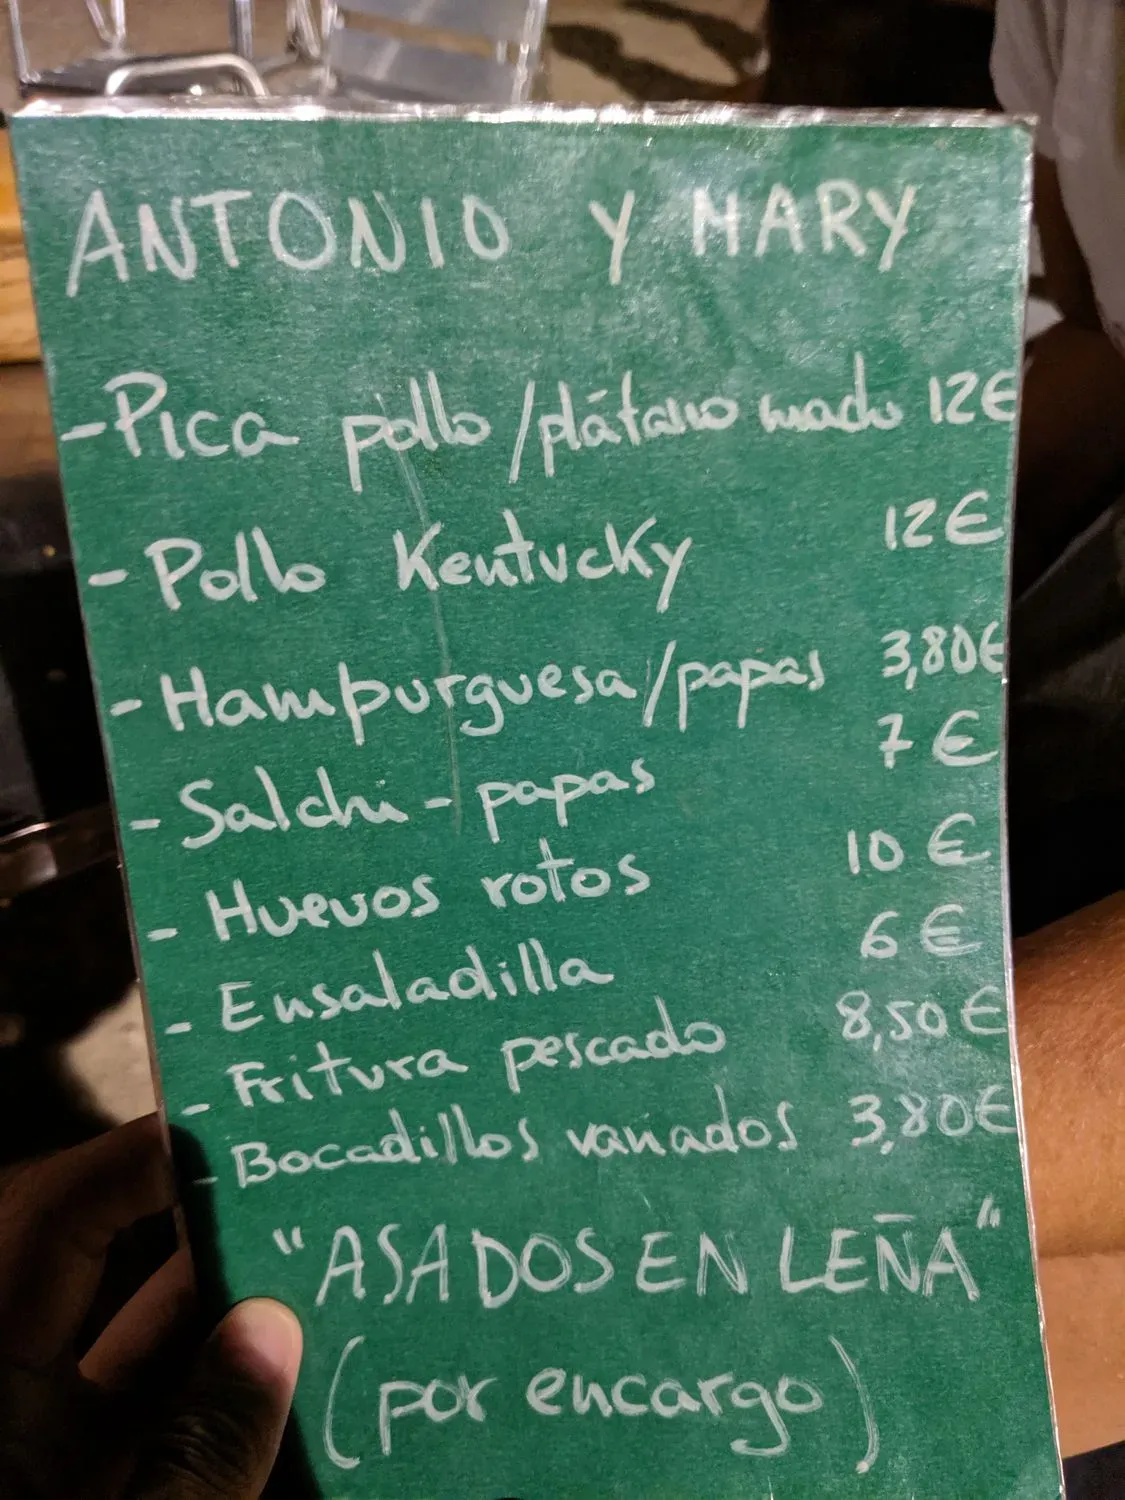 ANTONIO Y MARY
- Pica pollo / plátano macho 12€
- Pollo Kentucky 12€
- Hampurguesa/papas 3,80€
- Salchi-papas 7€
- Huevos rotos 10€
- Ensaladilla 6€
- Fritura pescado 8,50€
- Bocadillos variados 3,80€
"ASADOS EN LEÑA"
(por encargo)